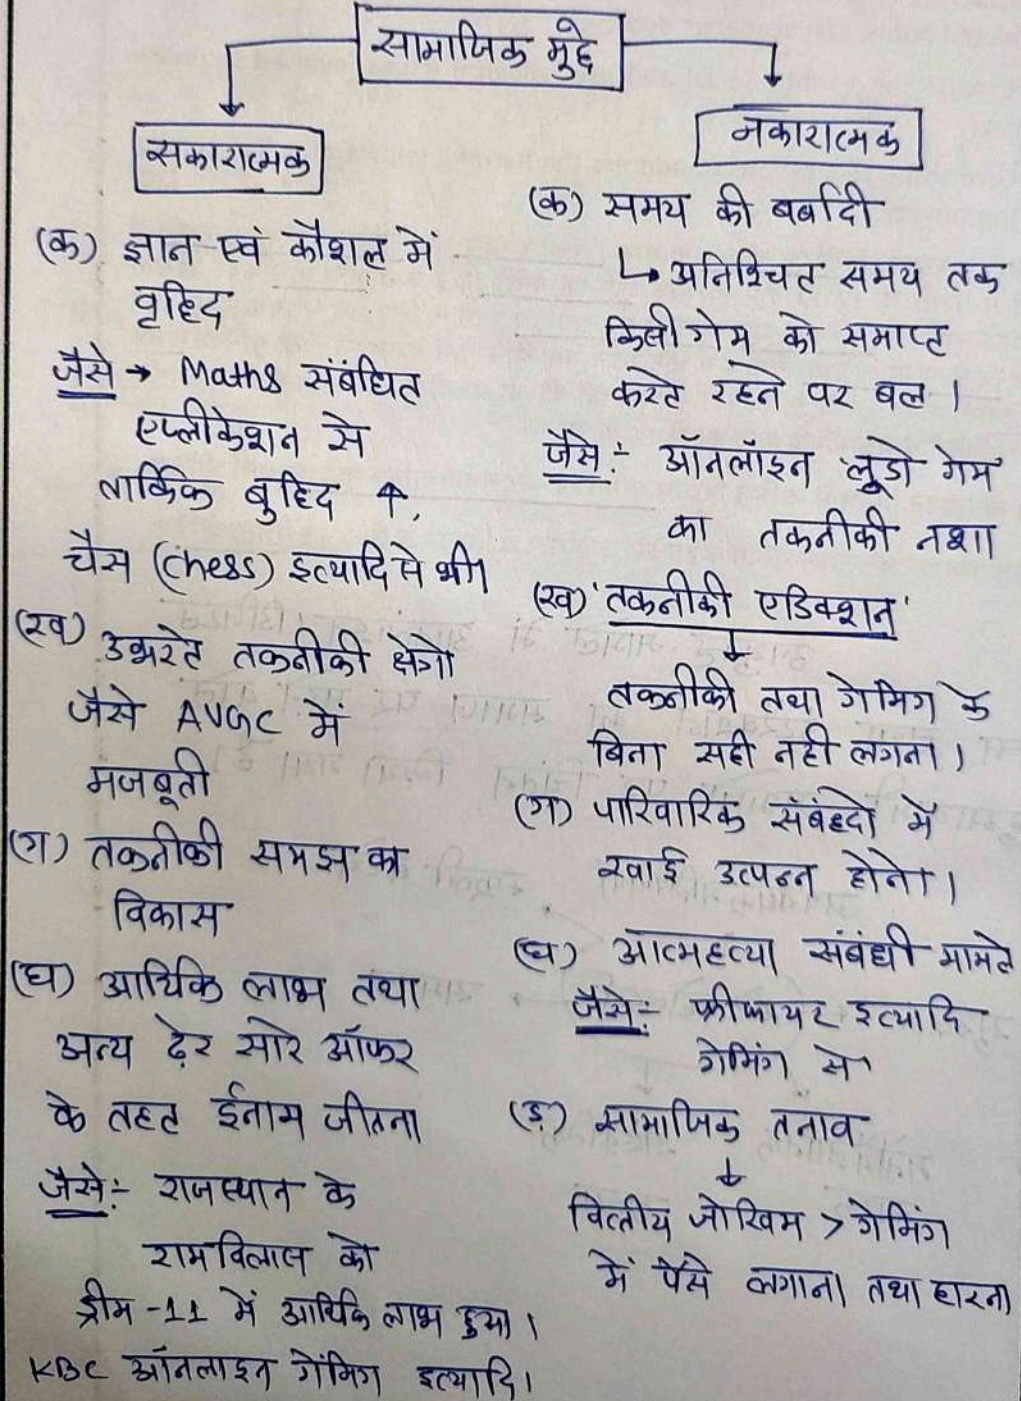 सामाजिक मुद्दे
सकारात्मक
(क) ज्ञान एवं कौशल में
वृद्धि
जैसे → Maths संबंधित
एप्लीकेशन से
तार्किक बुद्धि ↑,
चैस (chess) इत्यादि से भी।
(ख) उभरते तकनीकी क्षेत्रों
जैसे AVGC में
मजबूती
(ग) तकनीकी समझ का
विकास
(घ) आर्थिक लाभ तथा
अन्य ढ़ेर सारे ऑफर
के तहत ईनाम जीतना
जैसे:- राजस्थान के
रामविलास को
ड्रीम -11 में आर्थिक लाभ हुआ।
KBC ऑनलाइन गेंमिग इत्यादि।
नकारात्मक
(क) समय की बर्बादी
↳ अनिश्चित समय तक
किसी गेम को समाप्त
करते रहने पर बल।
जैसे:- ऑनलॉइन 'लूडो गेम'
का तकनीकी नशा
(ख) 'तकनीकी एडिक्शन'
↓
तकनीकी तथा गेमिग के
बिना सही नही लगना।
(ग) पारिवारिक संबंधो में
खाई उत्पन्न होना।
(घ) आत्महत्या संबंधी मामले
जैसे:- फ्रीफायर इत्यादि
गेमिंग से
(ड़) सामाजिक तनाव
↓
वित्तीय जोखिम > गेमिंग
में पैसे लगाना तथा हारना